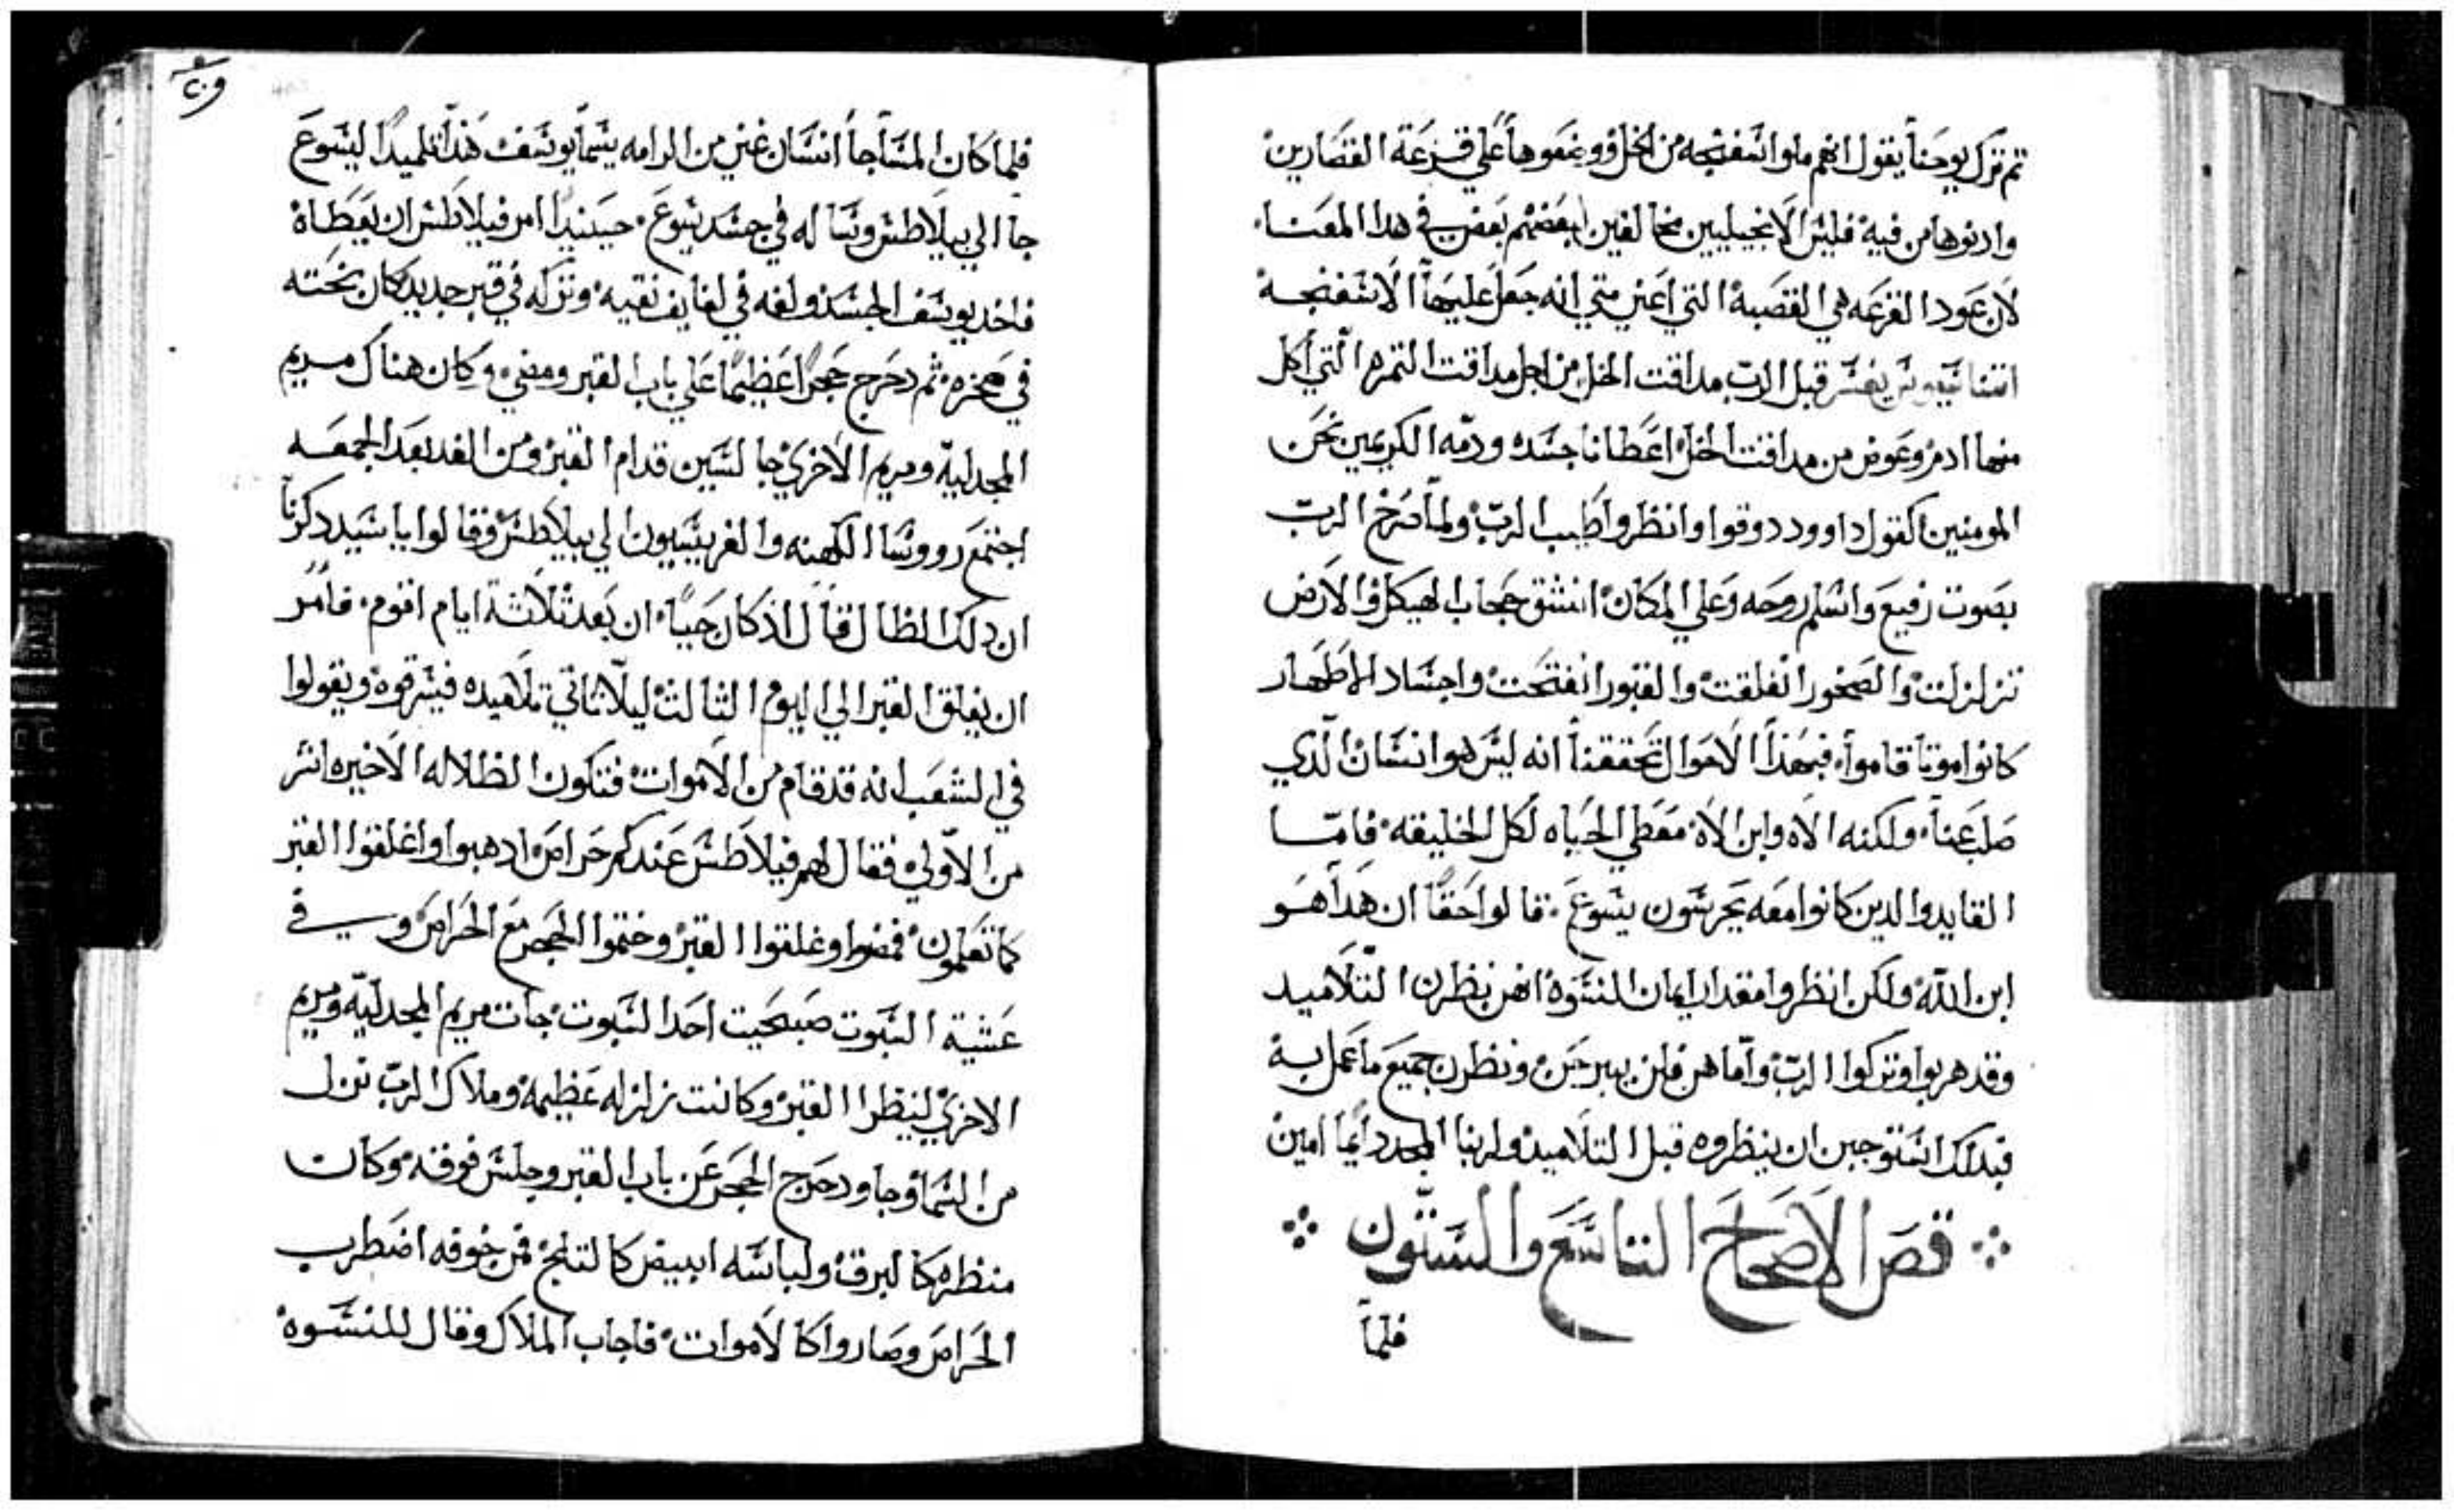 تم ترك يوحنا يقول انهم ملوا اسفنجه من الخل ووضعوها علي قزعة القصارين
وادنوها من فيه فليس الانجيليين مخالفين لبعضهم بعض في هدا المعنا
لان عود القزعه هي القصبة التي اعني متي انه جعل عليها الاسفنجه
قبل الرب مداقت الخل من اجل مداقت التمره التي اكل
منها ادم وعوض من مداقت الخل اعطانا جسده ودمه الكريمين نحن
المومنين كقول داوود دوقوا وانظروا اطيب الرب ولما صرخ الرب
بصوت رفيع واسلم روحه وعلي المكان انشق حجاب الهيكل والارض
تزلزلت والصخور انفلقت والقبور انفتحت واجساد الاطهار
كانوا موتا قاموا فبهذا الاحوال تحققنا انه ليس هو انسان الدي
صلب عنا ولكنه الاه وابن الاه معطي الحياه لكل الخليقه فامّا
القايد والدين كانوا معه يحرسون يسوع قالوا حقا ان هدا هو
ابن الله ولكن انظروا مقدار ايمان النسوه انهن نظرن التلاميد
وقد هربوا وتركوا الرب واما هن فلن يبرحن ونظرن جميع ما عمل به
فبدلك استوجبن ان ينظروه قبل التلاميد ولربنا المجد دايما امين
قصر الاصحاح التاسع والستون
فلما
فلما كان المسا جا انسان غني من الرامه يسما يوسف هدا تلميدا ليسوع
جا الي بيلاطس وساله في جسد يسوع حينيدا امر فيلاطس ان يعطاه
فاخد يوسف الجسد ولفه في لفايف نقيه وتركه في قبر جديد كان نحته
في صخره ثم دحرج حجرا عظيما علي باب القبر ومضي وكان هناك مريم
المجدلية ومريم الاخري جالسين قدام القبر ومن الغد بعد الجمعه
اجتمع رووسا الكهنه والفريسيون الي بيلاطس وقالوا ياسيد دكرنا
ان دلك الظال قال اد كان حيا ان بعد ثلاثة ايام اقوم فامر
ان يغلق القبر الي اليوم الثالث ليلا تاتي تلاميده فيسرقوه ويقولوا
في الشعب انه قد قام من الاموات فتكون الظلاله الاخيره اشر
من الاولي فقال لهم فيلاطس عندكم حراص ادهبوا واغلقوا القبر
كما تعلمون فمضوا وغلقوا القبر وختموا الحجر مع الحراص وفي
عشية السبوت صبحيت احد السبوت جات مريم المجدلية ومريم
الاخري لينظرا القبر وكانت زلزله عظيمه وملاك الرب نزل
من السما وجا ودحرج الحجر عن باب القبر وجلس فوقه وكان
منظره كالبرق ولباسه ابيض كالتلج فمن خوفه اضطرب
الحراص وصاروا كالاموات فاجاب الملاك وقال للنسوه